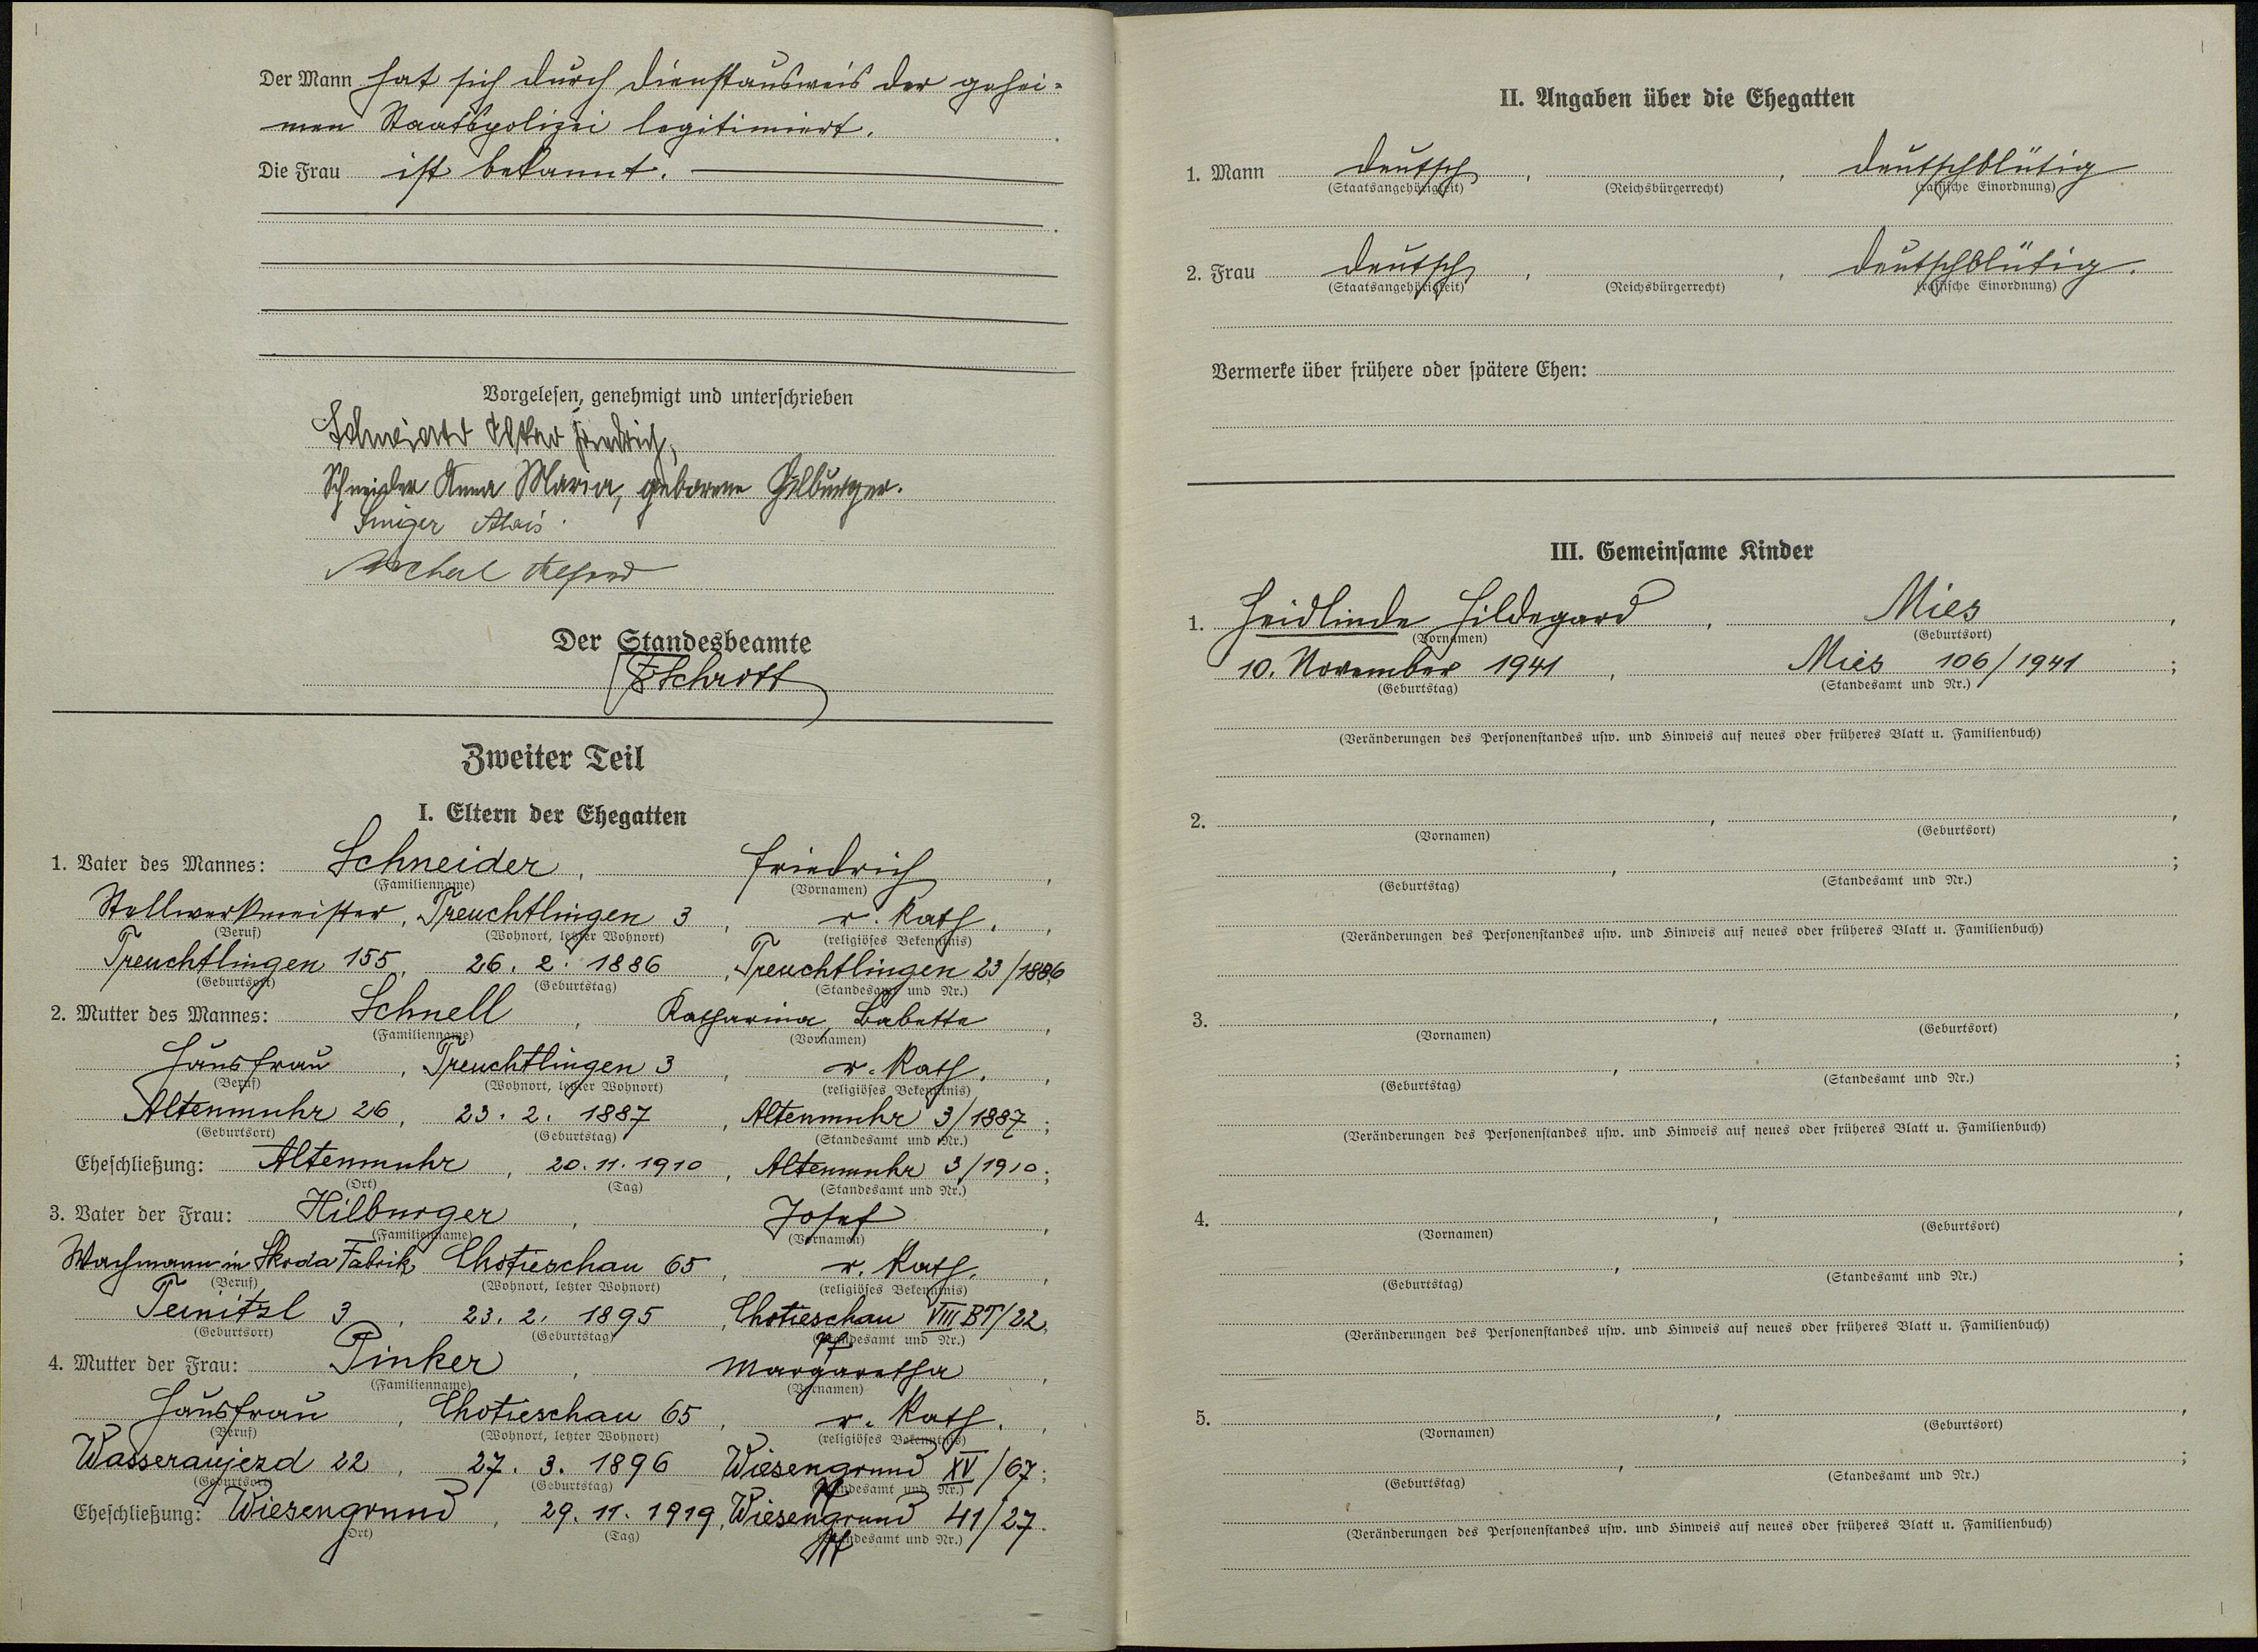 Der Mann hat sich durch Dienstausweis der gehei-
men Staatspolizei legitimiert.
Die Frau ist bekannt.
Vorgelesen, genehmigt und unterschrieben
Schneider Friedrich,
Schneider Anna Maria, geborene Hilburger.
Alois.
Der Standesbeamte
Schrott
Zweiter Teil
I. Eltern der Ehegatten
1. Vater des Mannes: Schneider, Friedrich,
(Familienname) (Vornamen)
Stellwerkmeister, Treuchtlingen 3, r. kath.,
(Beruf) (Wohnort, letzter Wohnort) (religiöses Bekenntnis)
Treuchtlingen 155, 26. 2. 1886, Treuchtlingen 23/1886
(Geburtsort) (Geburtstag) (Standesamt und Nr.)
2. Mutter des Mannes: Schnell, Katharina, Babette,
(Familienname) (Vornamen)
Hausfrau, Treuchtlingen 3, r. kath.,
(Beruf) (Wohnort, letzter Wohnort) (religiöses Bekenntnis)
Altenmuhr 26, 23. 2. 1887, Altenmuhr 3/1887;
(Geburtsort) (Geburtstag) (Standesamt und Nr.)
Eheschließung: Altenmuhr, 20. 11. 1910, Altenmuhr 3/1910;
(Ort) (Tag) (Standesamt und Nr.)
3. Vater der Frau: Hilburger, Josef,
(Familienname) (Vornamen)
Wachmann in Skoda Fabrik, Chotieschau 65, r. kath.,
(Beruf) (Wohnort, letzter Wohnort) (religiöses Bekenntnis)
Teinitzl 3, 23. 2. 1895, Chotieschau VIII BT/22,
(Geburtsort) (Geburtstag) (Standesamt und Nr.)
4. Mutter der Frau: Pinker, Margaretha,
(Familienname) (Vornamen)
Hausfrau, Chotieschau 65, r. kath.,
(Beruf) (Wohnort, letzter Wohnort) (religiöses Bekenntnis)
Wasseraujezd 22, 27. 3. 1896 Wiesengrund XV/67;
(Geburtsort) (Geburtstag) (Standesamt und Nr.)
Eheschließung: Wiesengrund, 29. 11. 1919, Wiesengrund 41/27.
(Ort) (Tag) (Standesamt und Nr.)
II. Angaben über die Ehegatten
1. Mann deutsch, , deutschblütig
(Staatsangehörigkeit) (Reichsbürgerrecht) (rassische Einordnung)
2. Frau deutsch, , deutschblütig.
(Staatsangehörigkeit) (Reichsbürgerrecht) (rassische Einordnung)
Vermerke über frühere oder spätere Ehen:
III. Gemeinsame Kinder
1. Heidlinde Hildegard, Mies,
(Vornamen) (Geburtsort)
10. November 1941, Mies 106/1941;
(Geburtstag) (Standesamt und Nr.)
(Veränderungen des Personenstandes usw. und Hinweis auf neues oder früheres Blatt u. Familienbuch)
2. , ,
(Vornamen) (Geburtsort)
, ;
(Geburtstag) (Standesamt und Nr.)
(Veränderungen des Personenstandes usw. und Hinweis auf neues oder früheres Blatt u. Familienbuch)
3. , ,
(Vornamen) (Geburtsort)
, ;
(Geburtstag) (Standesamt und Nr.)
(Veränderungen des Personenstandes usw. und Hinweis auf neues oder früheres Blatt u. Familienbuch)
4. , ,
(Vornamen) (Geburtsort)
, ;
(Geburtstag) (Standesamt und Nr.)
(Veränderungen des Personenstandes usw. und Hinweis auf neues oder früheres Blatt u. Familienbuch)
5. , ,
(Vornamen) (Geburtsort)
, ;
(Geburtstag) (Standesamt und Nr.)
(Veränderungen des Personenstandes usw. und Hinweis auf neues oder früheres Blatt u. Familienbuch)